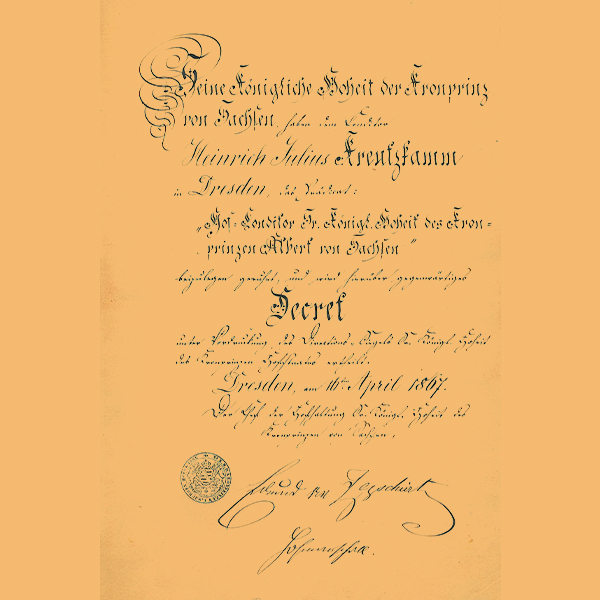 Seine Königliche Hoheit der Kronprinz
von Sachsen, haben dem Conditor
Heinrich Julius Kreutzkamm
in Dresden, das Prädicat:
„Hof-Conditor Sr. Königl. Hoheit des Kron-
prinzen Albert von Sachsen"
beizulegen geruht, und wird hierüber gegenwärtiges
Decret
unter Vordrückung des Directions-Siegels Sr. Königl. Hoheit
des Kronprinzen Hofstaates ertheilt.
Dresden, am 16ten April 1867.
Der Chef der Hofhaltung Sr. Königl. Hoheit des
Kronprinzen von Sachsen,